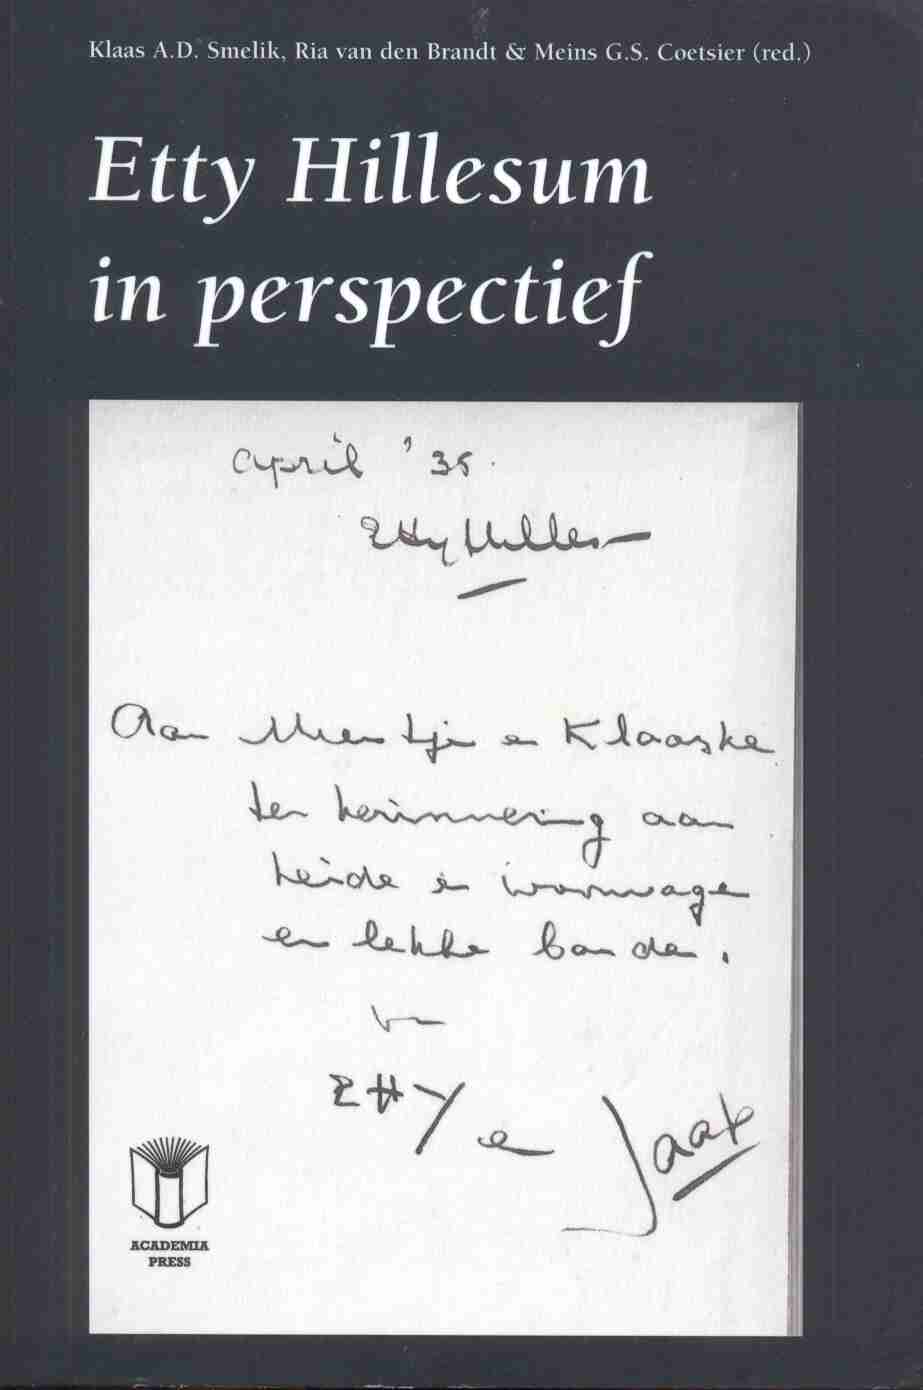 Klaas A.D. Smelik, Ria van den Brandt & Meins G.S. Coetsier (red.)
Etty Hillesum
in perspectief
April '35.
Etty Hillesum
Aan Mientje en Klaaske
ter herinnering aan
heide en woonwagen
en lekke banden.
van
Etty en Jaap
ACADEMIA
PRESS